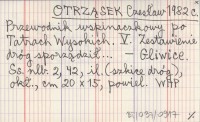 OTRZĄSEK Czesław 1982 c.
Przewodnik wspinaczkowy po
Tatrach Wysokich. V. Zestawienie
dróg sporządził... — Gliwice.
Ss. nlb. 2, 42, il. (szkice dróg),
okł., cm 20 x 15, powiel. WHP